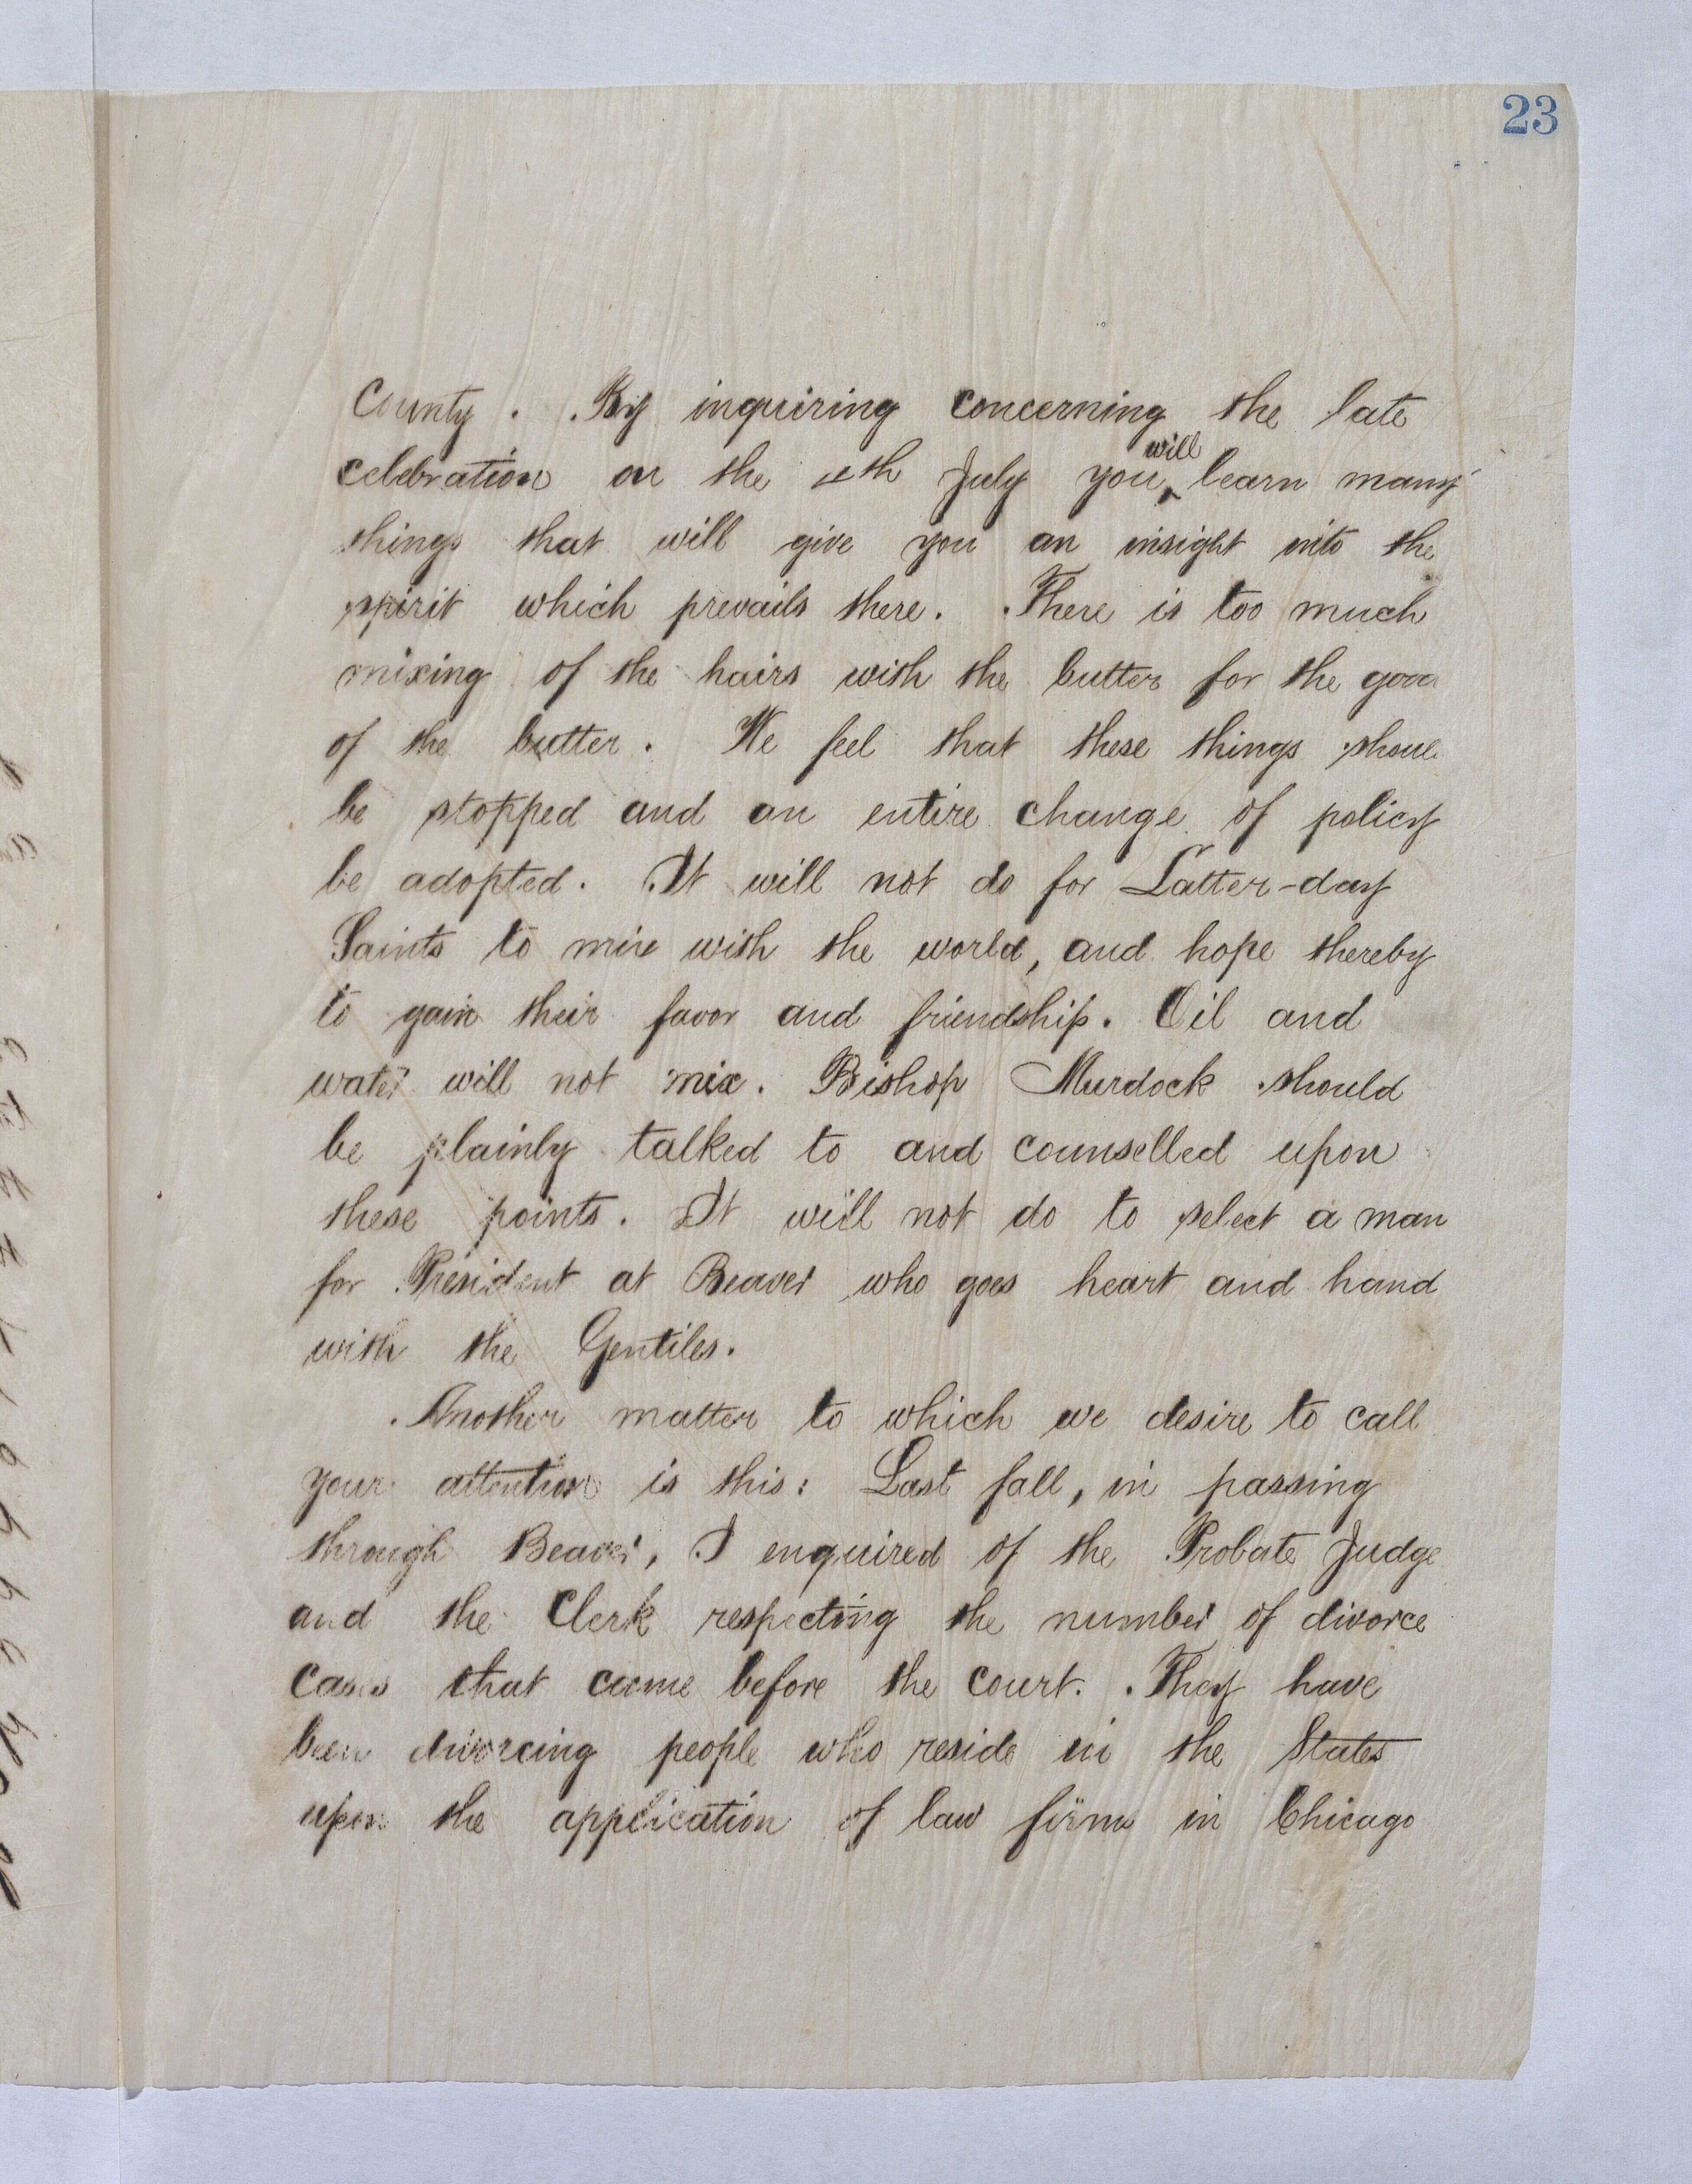 23
County. By inquiring concerning the late
celebration on the 4th July you will learn many
things that will give you an insight into the
spirit which prevails there. There is too much
mixing of the hairs with the butter for the good
of the butter. We feel that these things shoul
be stopped and an entire change of policy
be adopted. It will not do for Latter-day
Saints to mix with the world, and hope thereby
to gain their favor and friendship. Oil and
water will not mix. Bishop Murdock should
be plainly talked to and counselled upon
these points. It will not do to select a man
for President at Beaver who goes heart and hand
with the Gentiles.
Another matter to which we desire to call
your attention is this: Last fall, in passing
through Beaver, I enquired of the Probate Judge
and the Clerk respecting the number of divorce
cases that came before the court. They have
been divorcing people who reside in the States
upon the application of law firms in Chicago